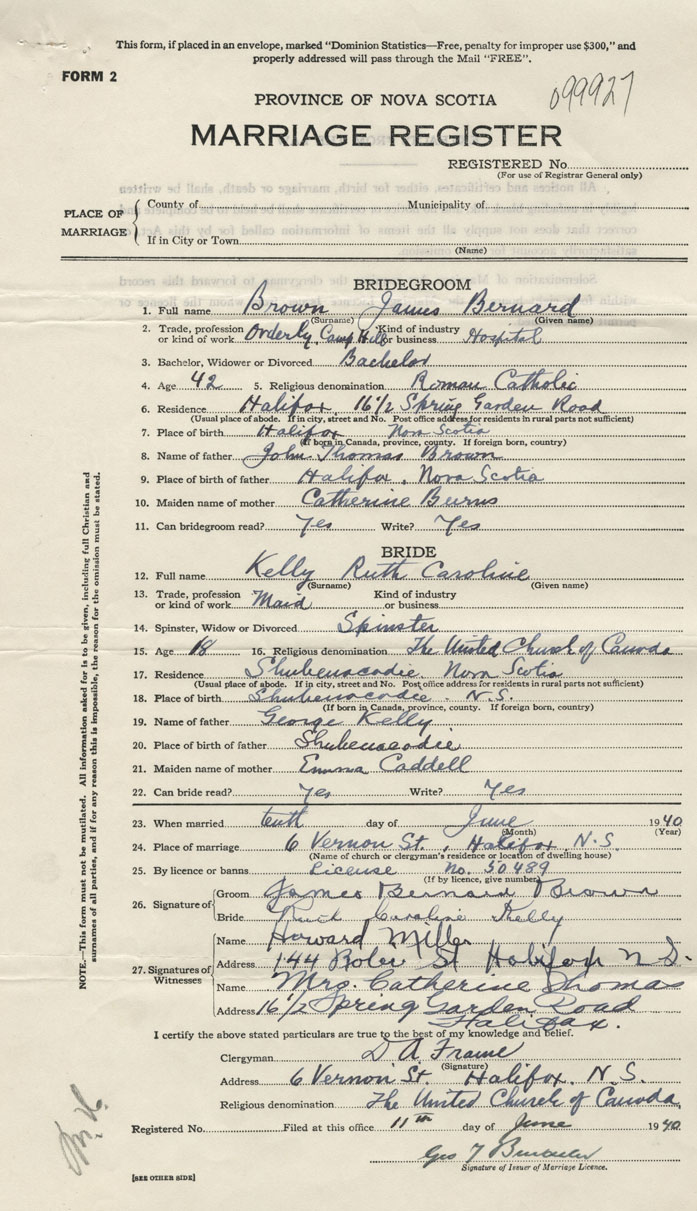 This form, if placed in an envelope, marked "Dominion Statistics—Free, penalty for improper use $300," and
properly addressed will pass through the Mail "FREE".
FORM 2
099927
PROVINCE OF NOVA SCOTIA
MARRIAGE REGISTER
REGISTERED No.
(For use of Registrar General only)
PLACE OF MARRIAGE
County of Municipality of
If in City or Town
(Name)
BRIDEGROOM
1. Full name Brown James Bernard
(Surname) (Given name)
2. Trade, profession or kind of work Orderly, Camp Hill Kind of industry or business Hospital
3. Bachelor, Widower or Divorced Bachelor
4. Age 42 5. Religious denomination Roman Catholic
6. Residence Halifax 16 1/2 Spring Garden Road
(Usual place of abode. If in city, street and No. Post office address for residents in rural parts not sufficient)
7. Place of birth Halifax Nova Scotia
(If born in Canada, province, county. If foreign born, country)
8. Name of father John Thomas Brown
9. Place of birth of father Halifax, Nova Scotia
10. Maiden name of mother Catherine Burns
11. Can bridegroom read? Yes Write? Yes
BRIDE
12. Full name Kelly Ruth Caroline
(Surname) (Given name)
13. Trade, profession or kind of work Maid Kind of industry or business
14. Spinster, Widow or Divorced Spinster
15. Age 18 16. Religious denomination The United Church of Canada
17. Residence Shubenacadie, Nova Scotia
(Usual place of abode. If in city, street and No. Post office address for residents in rural parts not sufficient)
18. Place of birth Shubenacadie, N.S.
(If born in Canada, province, county. If foreign born, country)
19. Name of father George Kelly
20. Place of birth of father Shubenacadie
21. Maiden name of mother Emma Caddell
22. Can bride read? Yes Write? Yes
23. When married tenth day of June 1940
(Month) (Year)
24. Place of marriage 6 Vernon St., Halifax, N.S.
(Name of church or clergyman's residence or location of dwelling house)
25. By licence or banns License No. 50489
(If by licence, give number)
26. Signature of
Groom James Bernard Brown
Bride Ruth Caroline Kelly
27. Signatures of Witnesses
Name Howard Miller
Address 144 St Halifax N.S.
Name Mrs. Catherine Thomas
Address 16 1/2 Spring Garden Road
Halifax.
I certify the above stated particulars are true to the best of my knowledge and belief.
Clergyman D A Frame
(Signature)
Address 6 Vernon St. Halifax, N.S.
Religious denomination The United Church of Canada
Registered No. Filed at this office 11th day of June 1940
Geo T
Signature of Issuer of Marriage Licence.
[SEE OTHER SIDE]
NOTE.—This form must not be mutilated. All information asked for is to be given, including full Christian and
surnames of all parties, and if for any reason this is impossible, the reason for the omission must be stated.